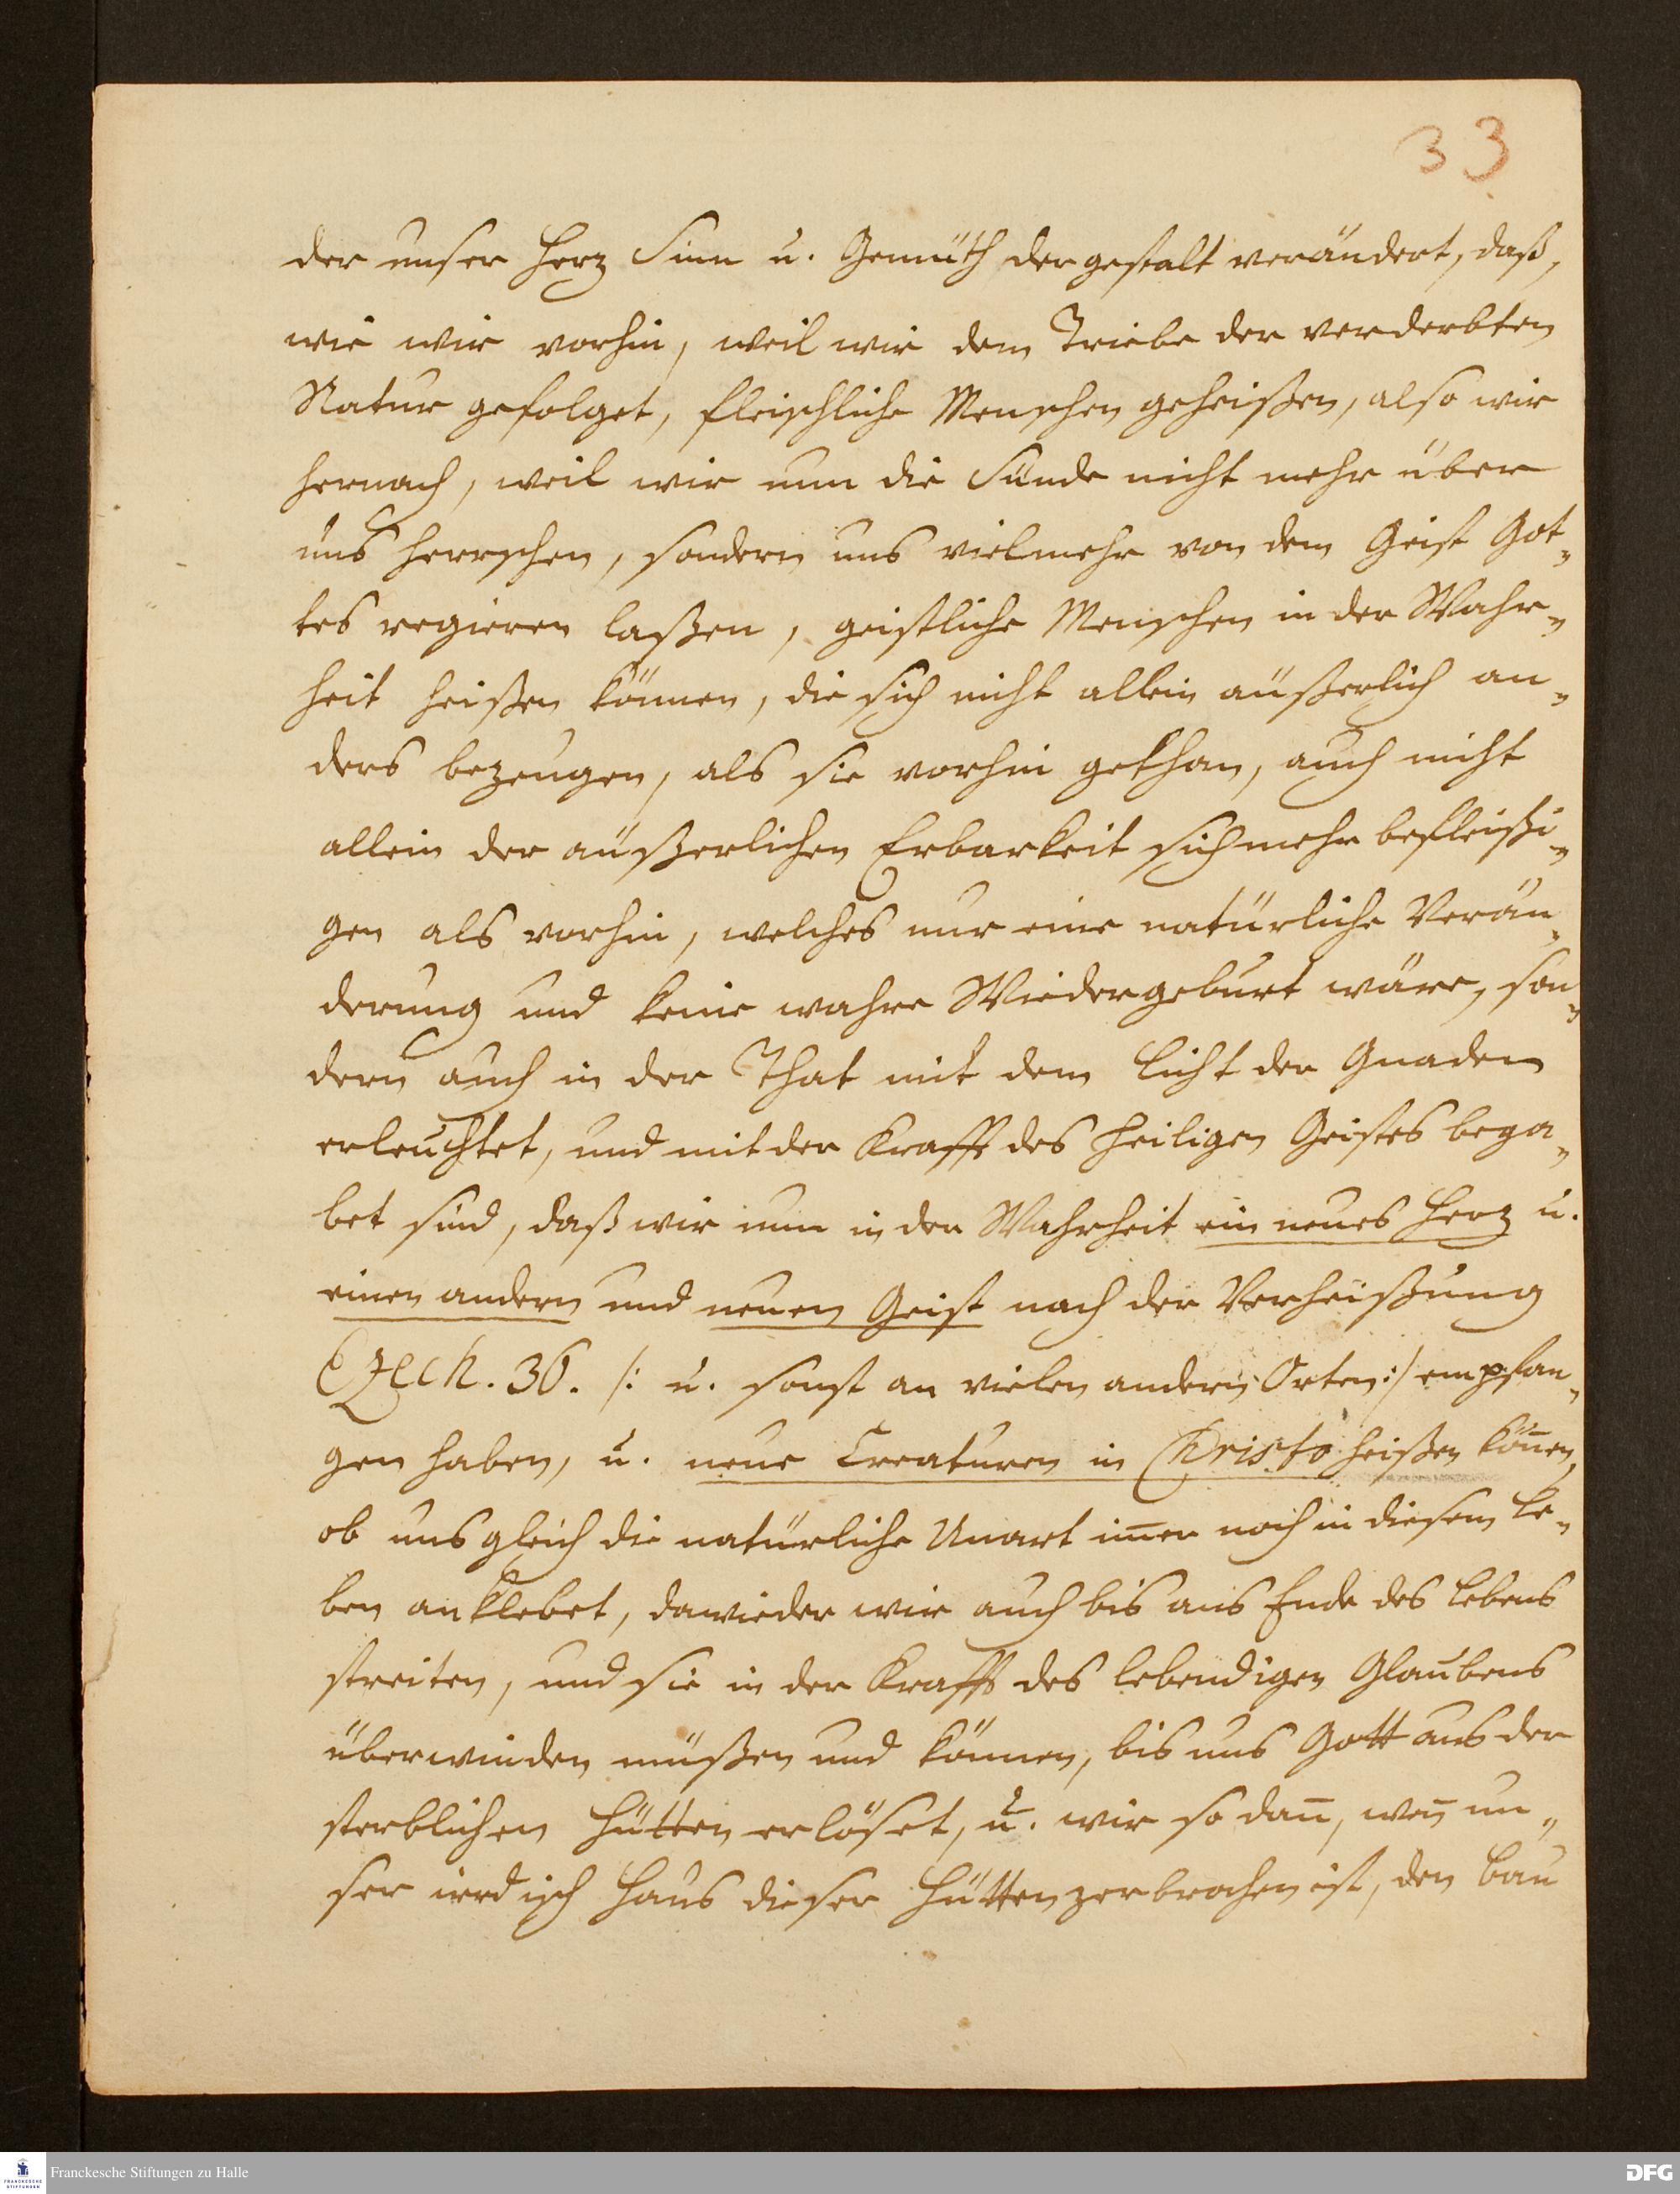 33
der unser Herz Sinn u. Gemüth dergestalt verändert, daß,
wie wir vorhin, weil wir dem Triebe der verderbten
Natur gefolget, fleischliche Menschen geheißen, also wir
hernach, weil wir nun die Sünde nicht mehr über
uns herrschen, sondern uns vielmehr von dem Geist Got-
tes regieren laßen, geistliche Menschen in der Wahr-
heit heißen können, die sich nicht allein äußerlich an-
ders bezeugen, als sie vorhin gethan, auch nicht
allein der äußerlichen Erbarkeit sich mehr befleißi-
gen als vorhin, welches nur eine natürliche Verän-
derung und keine wahre Wiedergeburt wäre, son-
dern auch in der That mit dem Licht der Gnaden
erleuchtet, und mit der Krafft des Heiligen Geistes bega-
bet sind, daß wir nun in der Wahrheit ein neues Herz u.
einen andern und neuen Geist nach der Verheißung
Ezech. 36. /: u. sonst an vielen andern Orten :/ empfan-
gen haben, u. neue Creaturen in Christo heißen kön̄en,
ob uns gleich die natürliche Unart im̄er noch in diesem Le-
ben anklebet, dawieder wir auch bis ans Ende des Lebens
streiten, und sie in der Krafft des lebendigen Glaubens
überwinden müßen und können, bis uns Gott aus der
sterblichen Hütten erlöset, u. wir so dan̄, wen̄ un-
ser irrdisch Haus dieser Hütten zerbrochen ist, den Bau
Franckesche Stiftungen zu Halle
FRANCKESCHE STIFTUNGEN
DFG